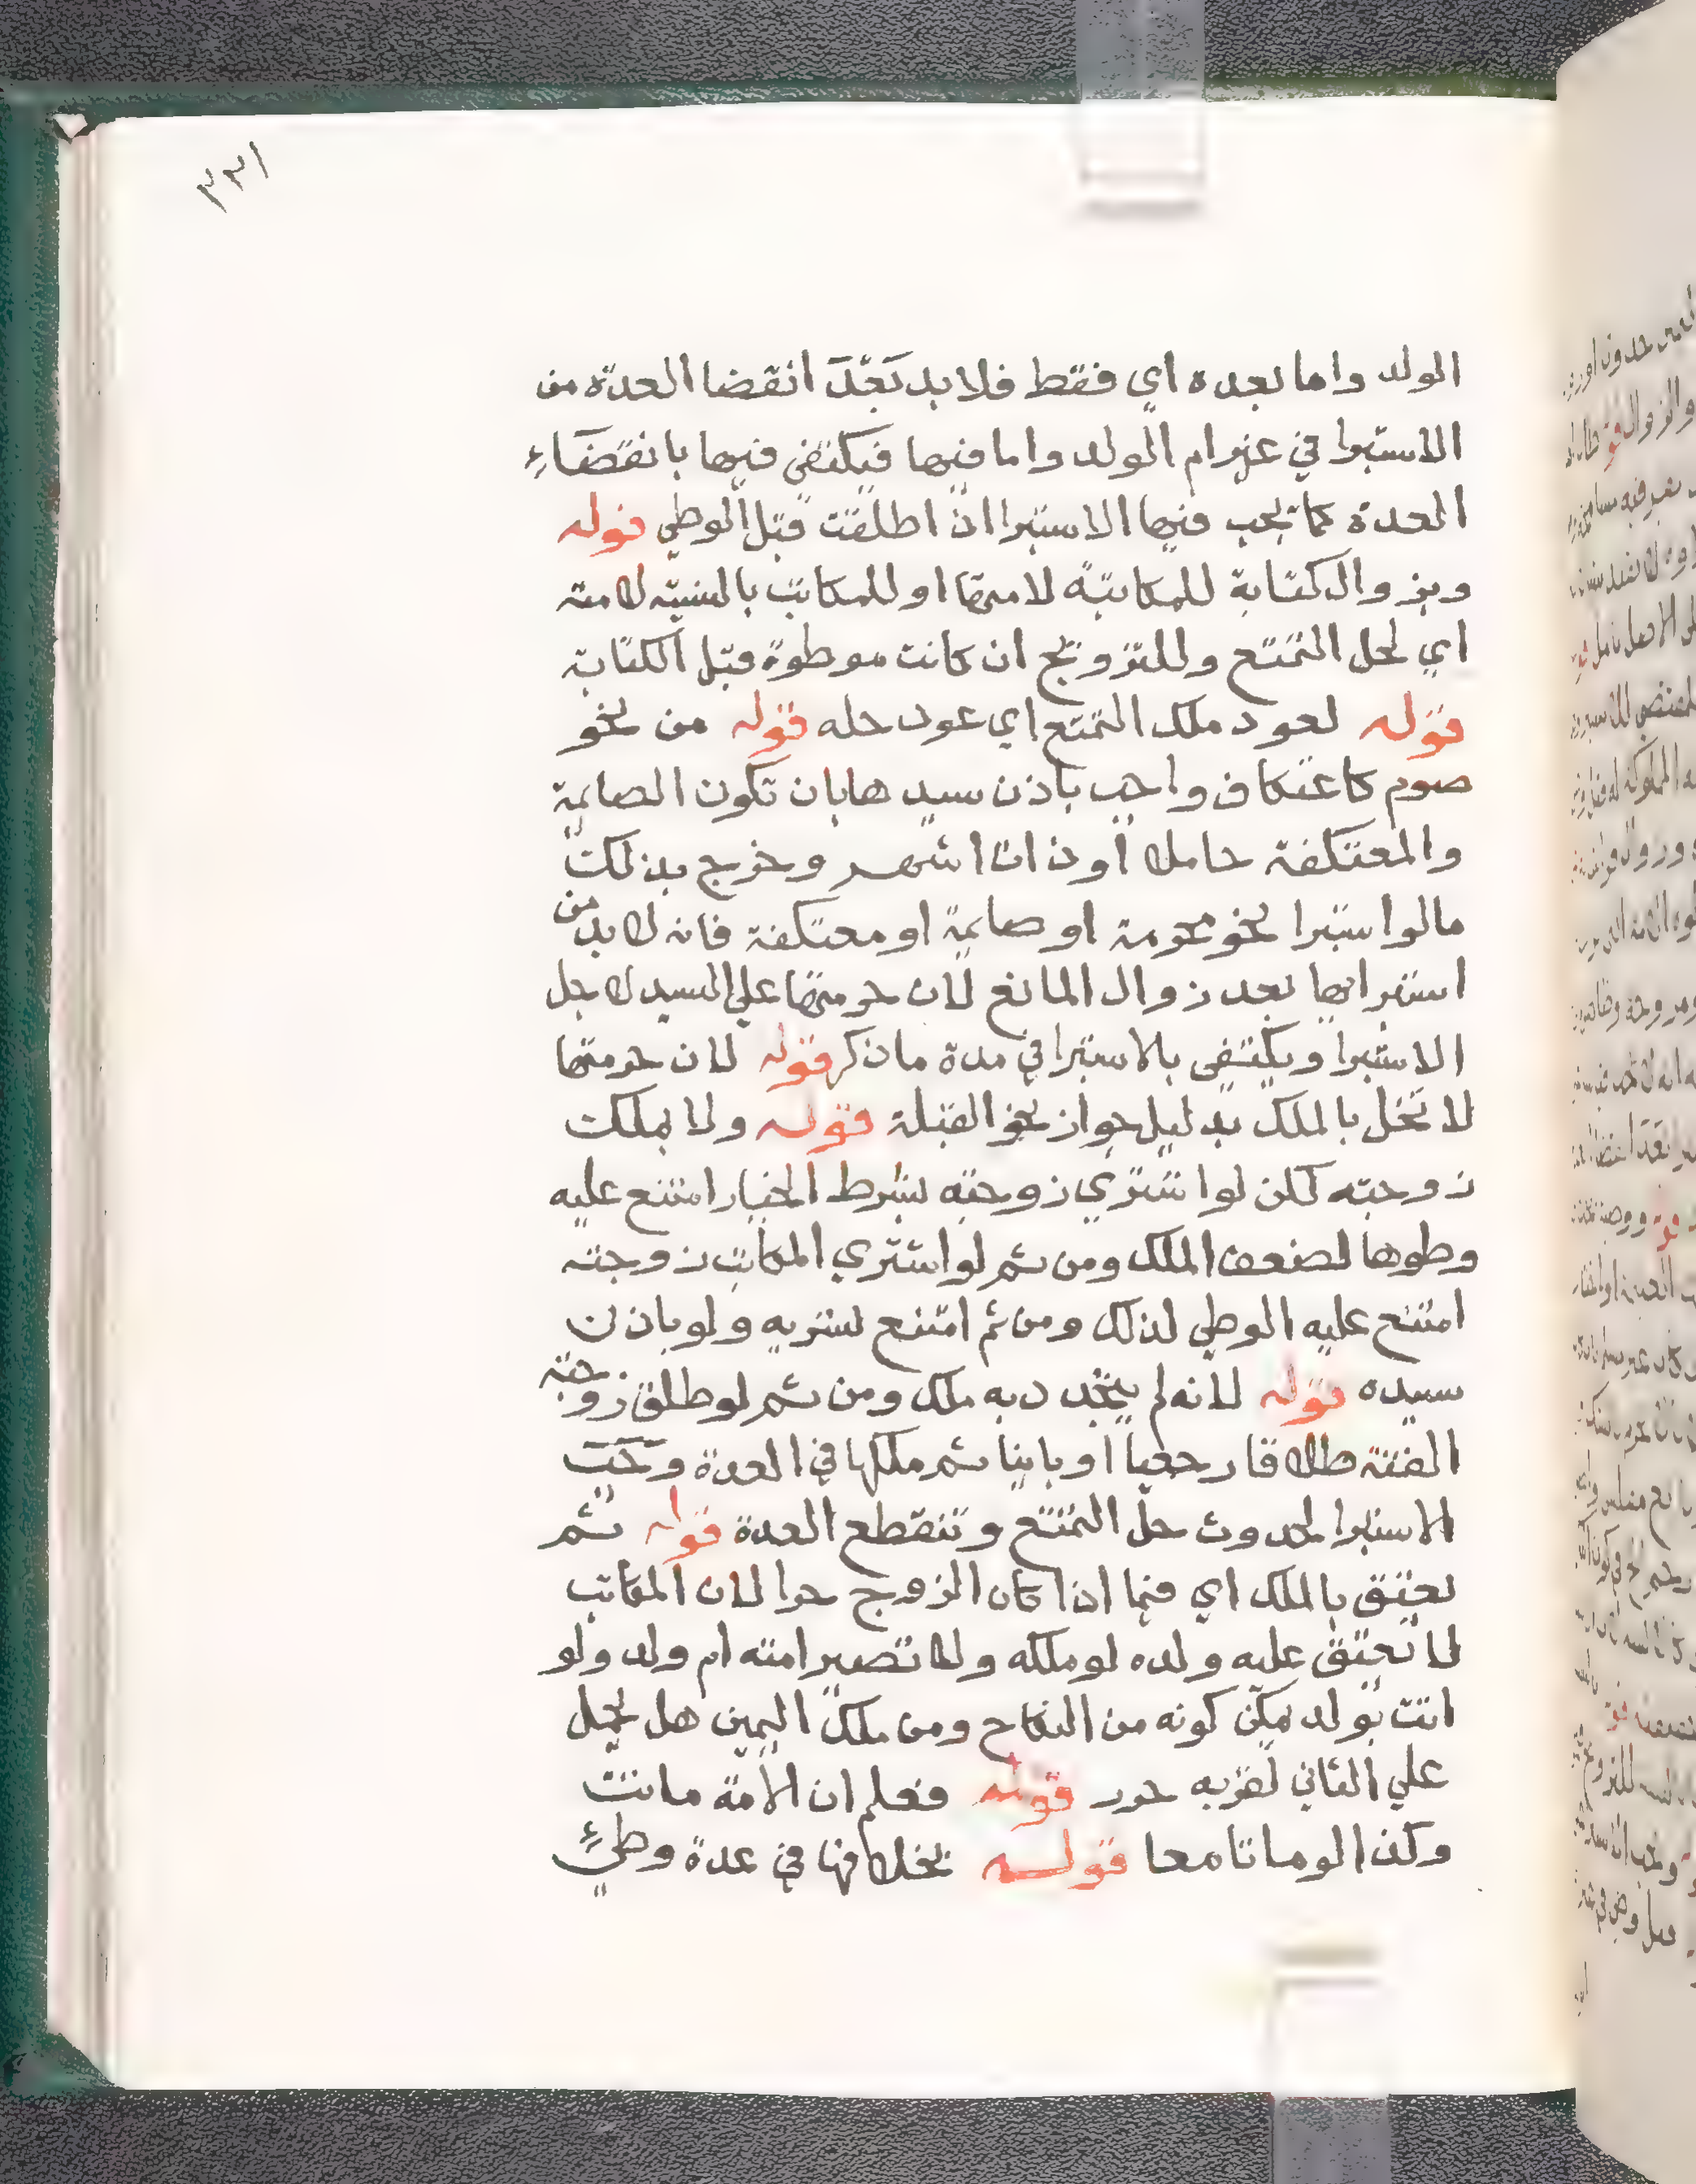 ٣٣١
الولد واما بعده اي فقط فلا بد بَعْدَ انقضا العدة من
الاستبرا في غير ام الولد واما فيها فيكتفي فيها بانقضَاءِ
العدة كما يجب فيها الاستبرا اذا طلقت قبل الوطي قوله
وبزوال كتابة للمكاتبة لامتها او للمكاتب بالنسبة لامته
اي لحل التمتع وللتزويج ان كانت موطوة قبل الكتابة
قوله لعود ملك التمتع اي عود حله قوله من نحو
صوم كاعتكاف واجب باذن سيدها بان تكون الصايمة
والمعتكفة حاملا او ذات اشهر وخرج بذلك
مالو استبرا نحو محرمة او صايمة او معتكفة فانه لا بد من
استبرايها بعد زوال المانع لان حرمتها علي السيد لا جل
الاستبرا ويكتفي بالاستبرا في مدة ما ذكر قوله لان حرمتها
لا تخل بالملك بدليل جواز نحو القبلة قوله ولا بملك
زوجته لكن لو اشتري زوجته بشرط الخيار امتنع عليه
وطوها لضعف الملك ومن ثم لو اشتري المكاتب زوجته
امتنع عليه الوطي لذلك ومن ثم امتنع تسريه ولو باذن
سيده قوله لانه لم يتجدد به ملك ومن ثم لو طلق زوجته
القنة طلاقا رجعيا او باينا ثم ملكها في العدة وَجَبَ
الاستبرا لحدوث حل التمتع وتنقطع العدة قوله ثم
تعتق بالملك اي فيما اذا كان الزوج حرا لان المكاتب
لا يعتق عليه ولده لو ملكه ولا تصير امته ام ولد ولو
اتت بولد يمكن كونه من النكاح ومن ملك اليمين هل يحمل
علي الثاني لقربه حرر قوله فعلم ان الامة ماتت
وكذا لو ماتا معا قوله بخلافها في عدة وطيءٍ